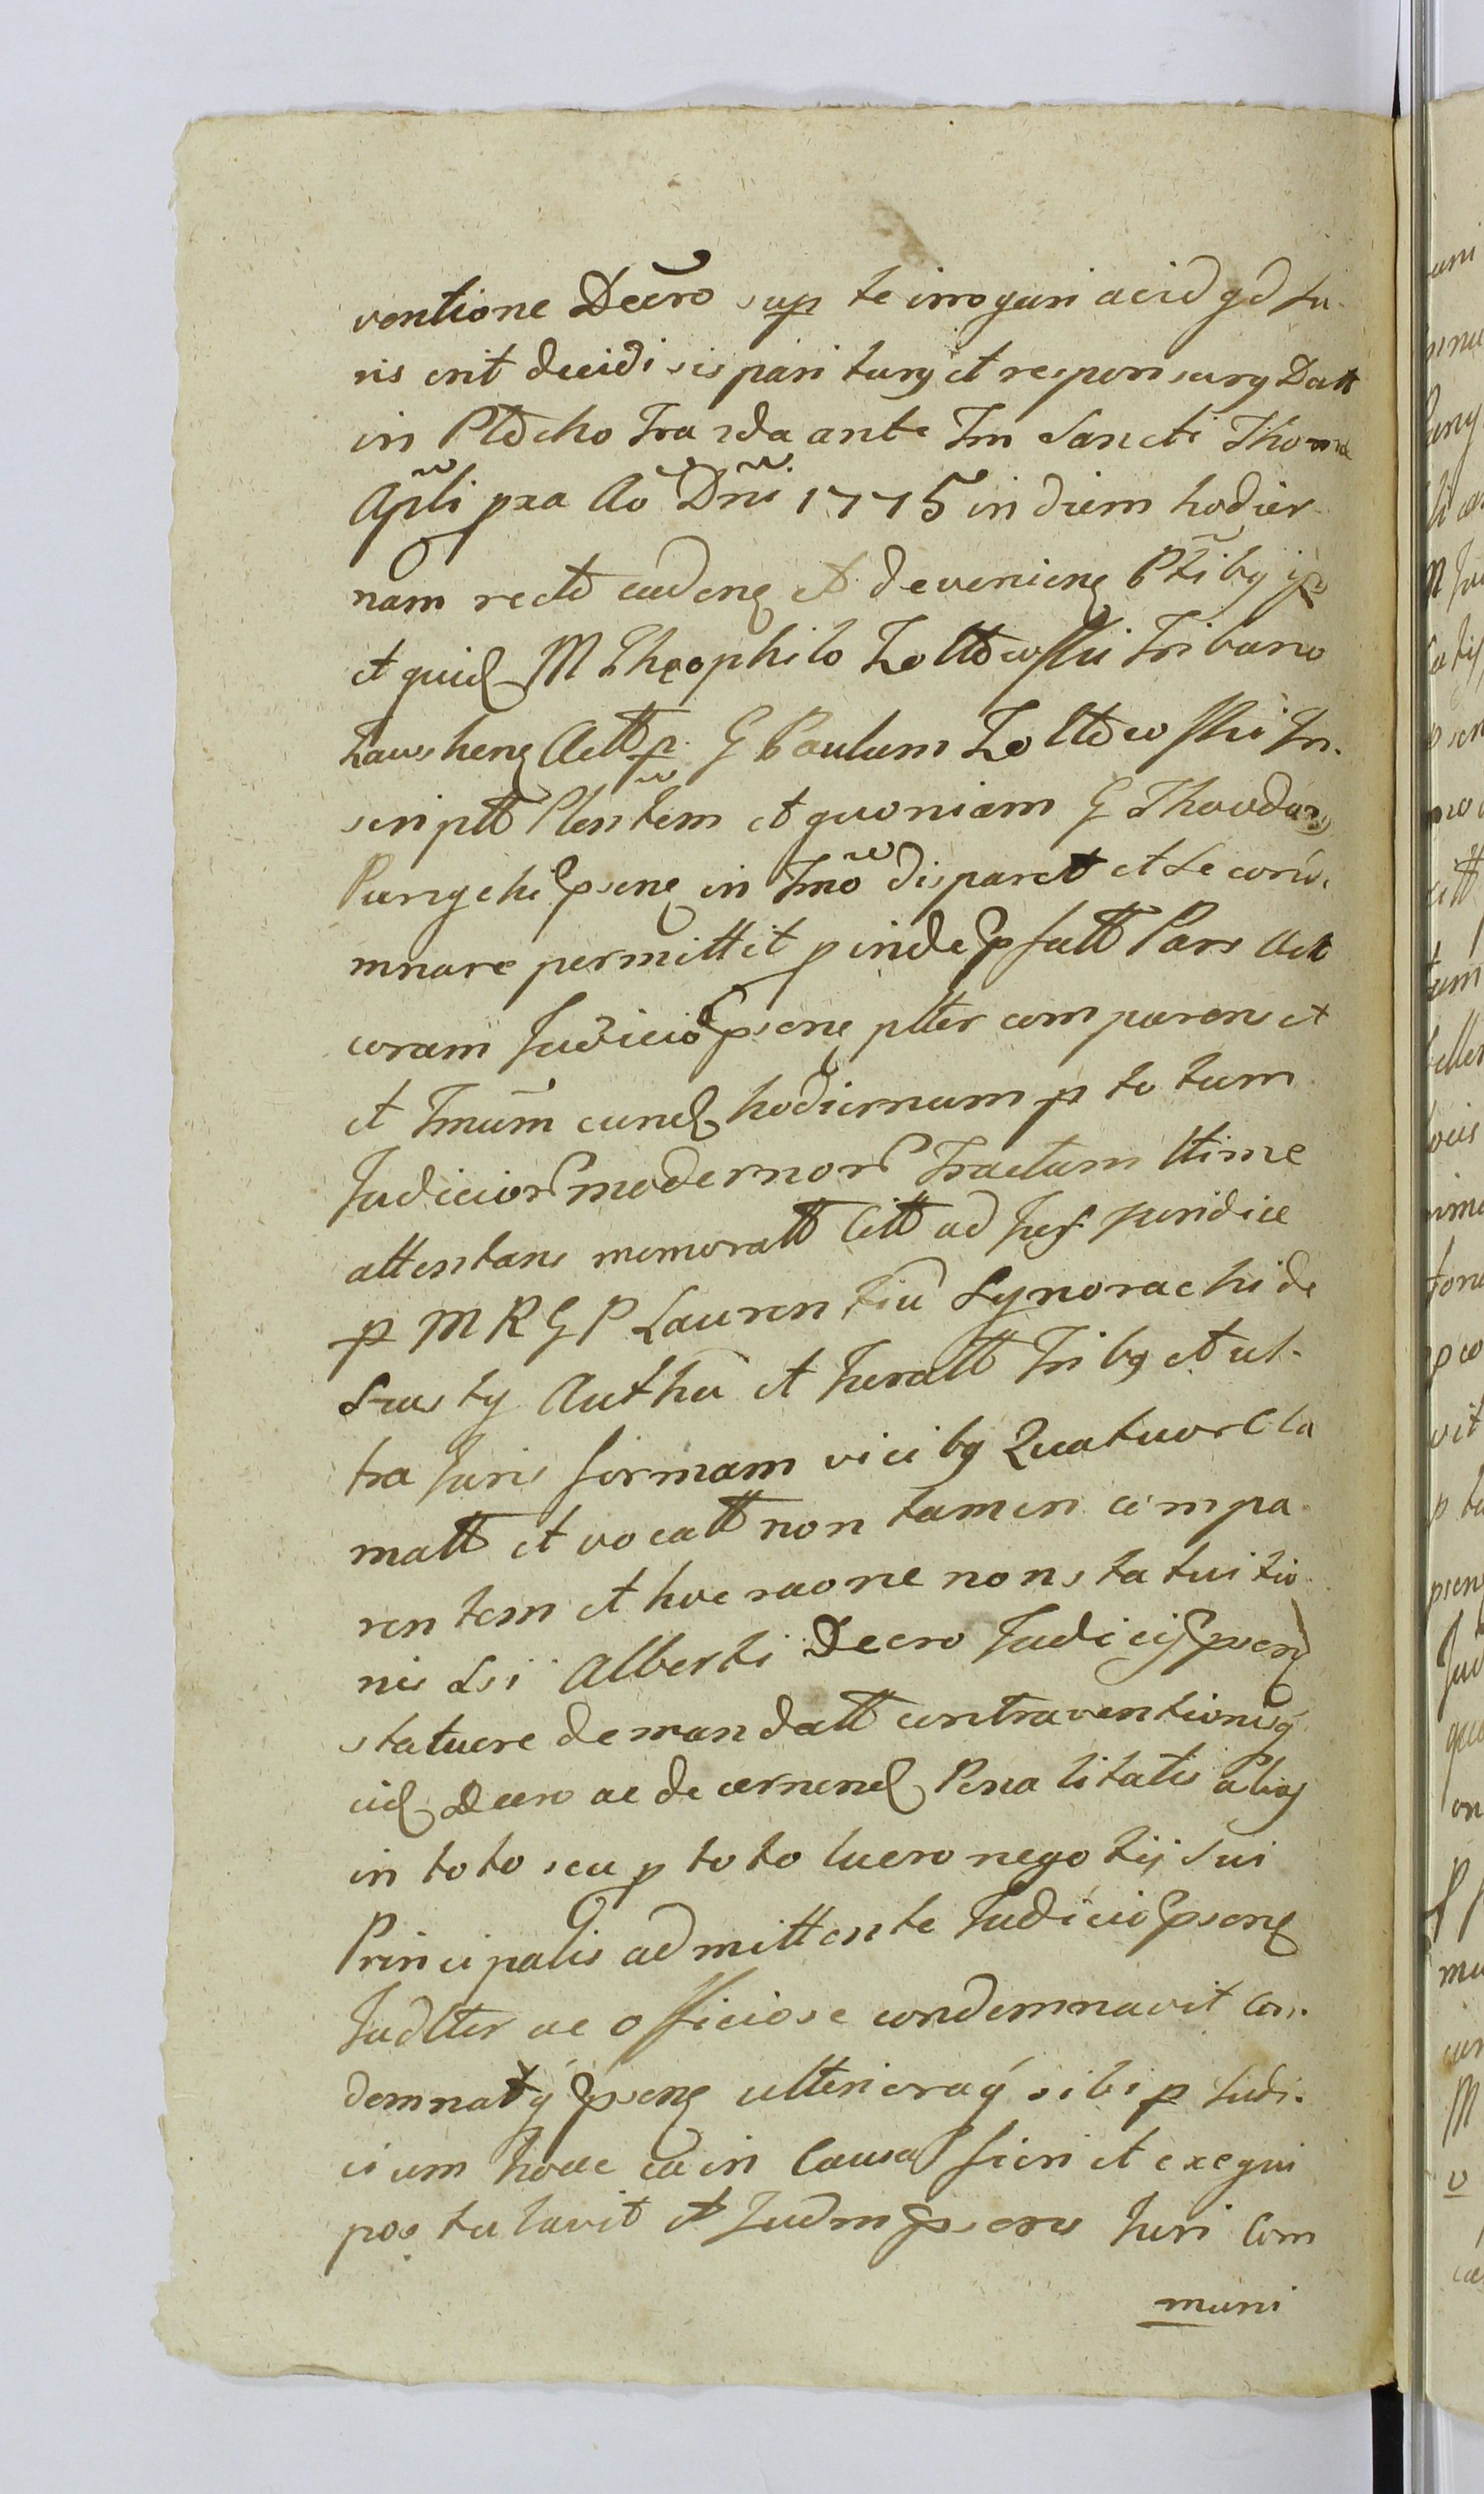 ventione Decro sup te irrogari acid qd Ju-
ris erit decidi sis pariturq et responsurq Datt
in Płocko Fra 2da ante Fm Sancti Thomæ
Apłi pxa Ao Dni 1775 in diem hodier
nam recto cadenq et devenienq Ptibq ips
et quid M Theophilo Zołtowski Tribuno
Zawskenq Actt p G Paulum Zołtowski In-
scriptt Plentem et quoniam G Thaddæus
psenq in Tmo disparet et se con
mnare permittit pinde psatt Pars Act
coram Judicio psenq plter comparens et
et Tmum eund hodiernum p totum
Judicior modernor Tractum ltime
attentans memoratt Citt ad Jus juridice
p M R G P Laurentiu Synoracki de
Srusty Authu et Juratt Tribq et ul-
tra Juris formam vicibq Quatuor Cla
matt et vocatt non tamen compa-
rentem et hoc raone non statuitio
nis Sti Alberti Decro Judicij psenq
statuere demandatt contraventionisq
eid Decro ac decernend Penalitatis aliasq
in toto seu p toto lucro negotij sui
Principalis admittente Judicio psenq
Judlter ac officiose condemnavit Con-
demnatq psenq ulterioraq sibi p Judi-
cium hocce ea in Causa fieri et exequi
postulavit et Judm psens Juri Com
muni